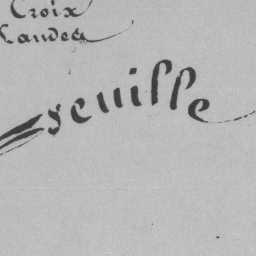 Croix
Landes
seuille